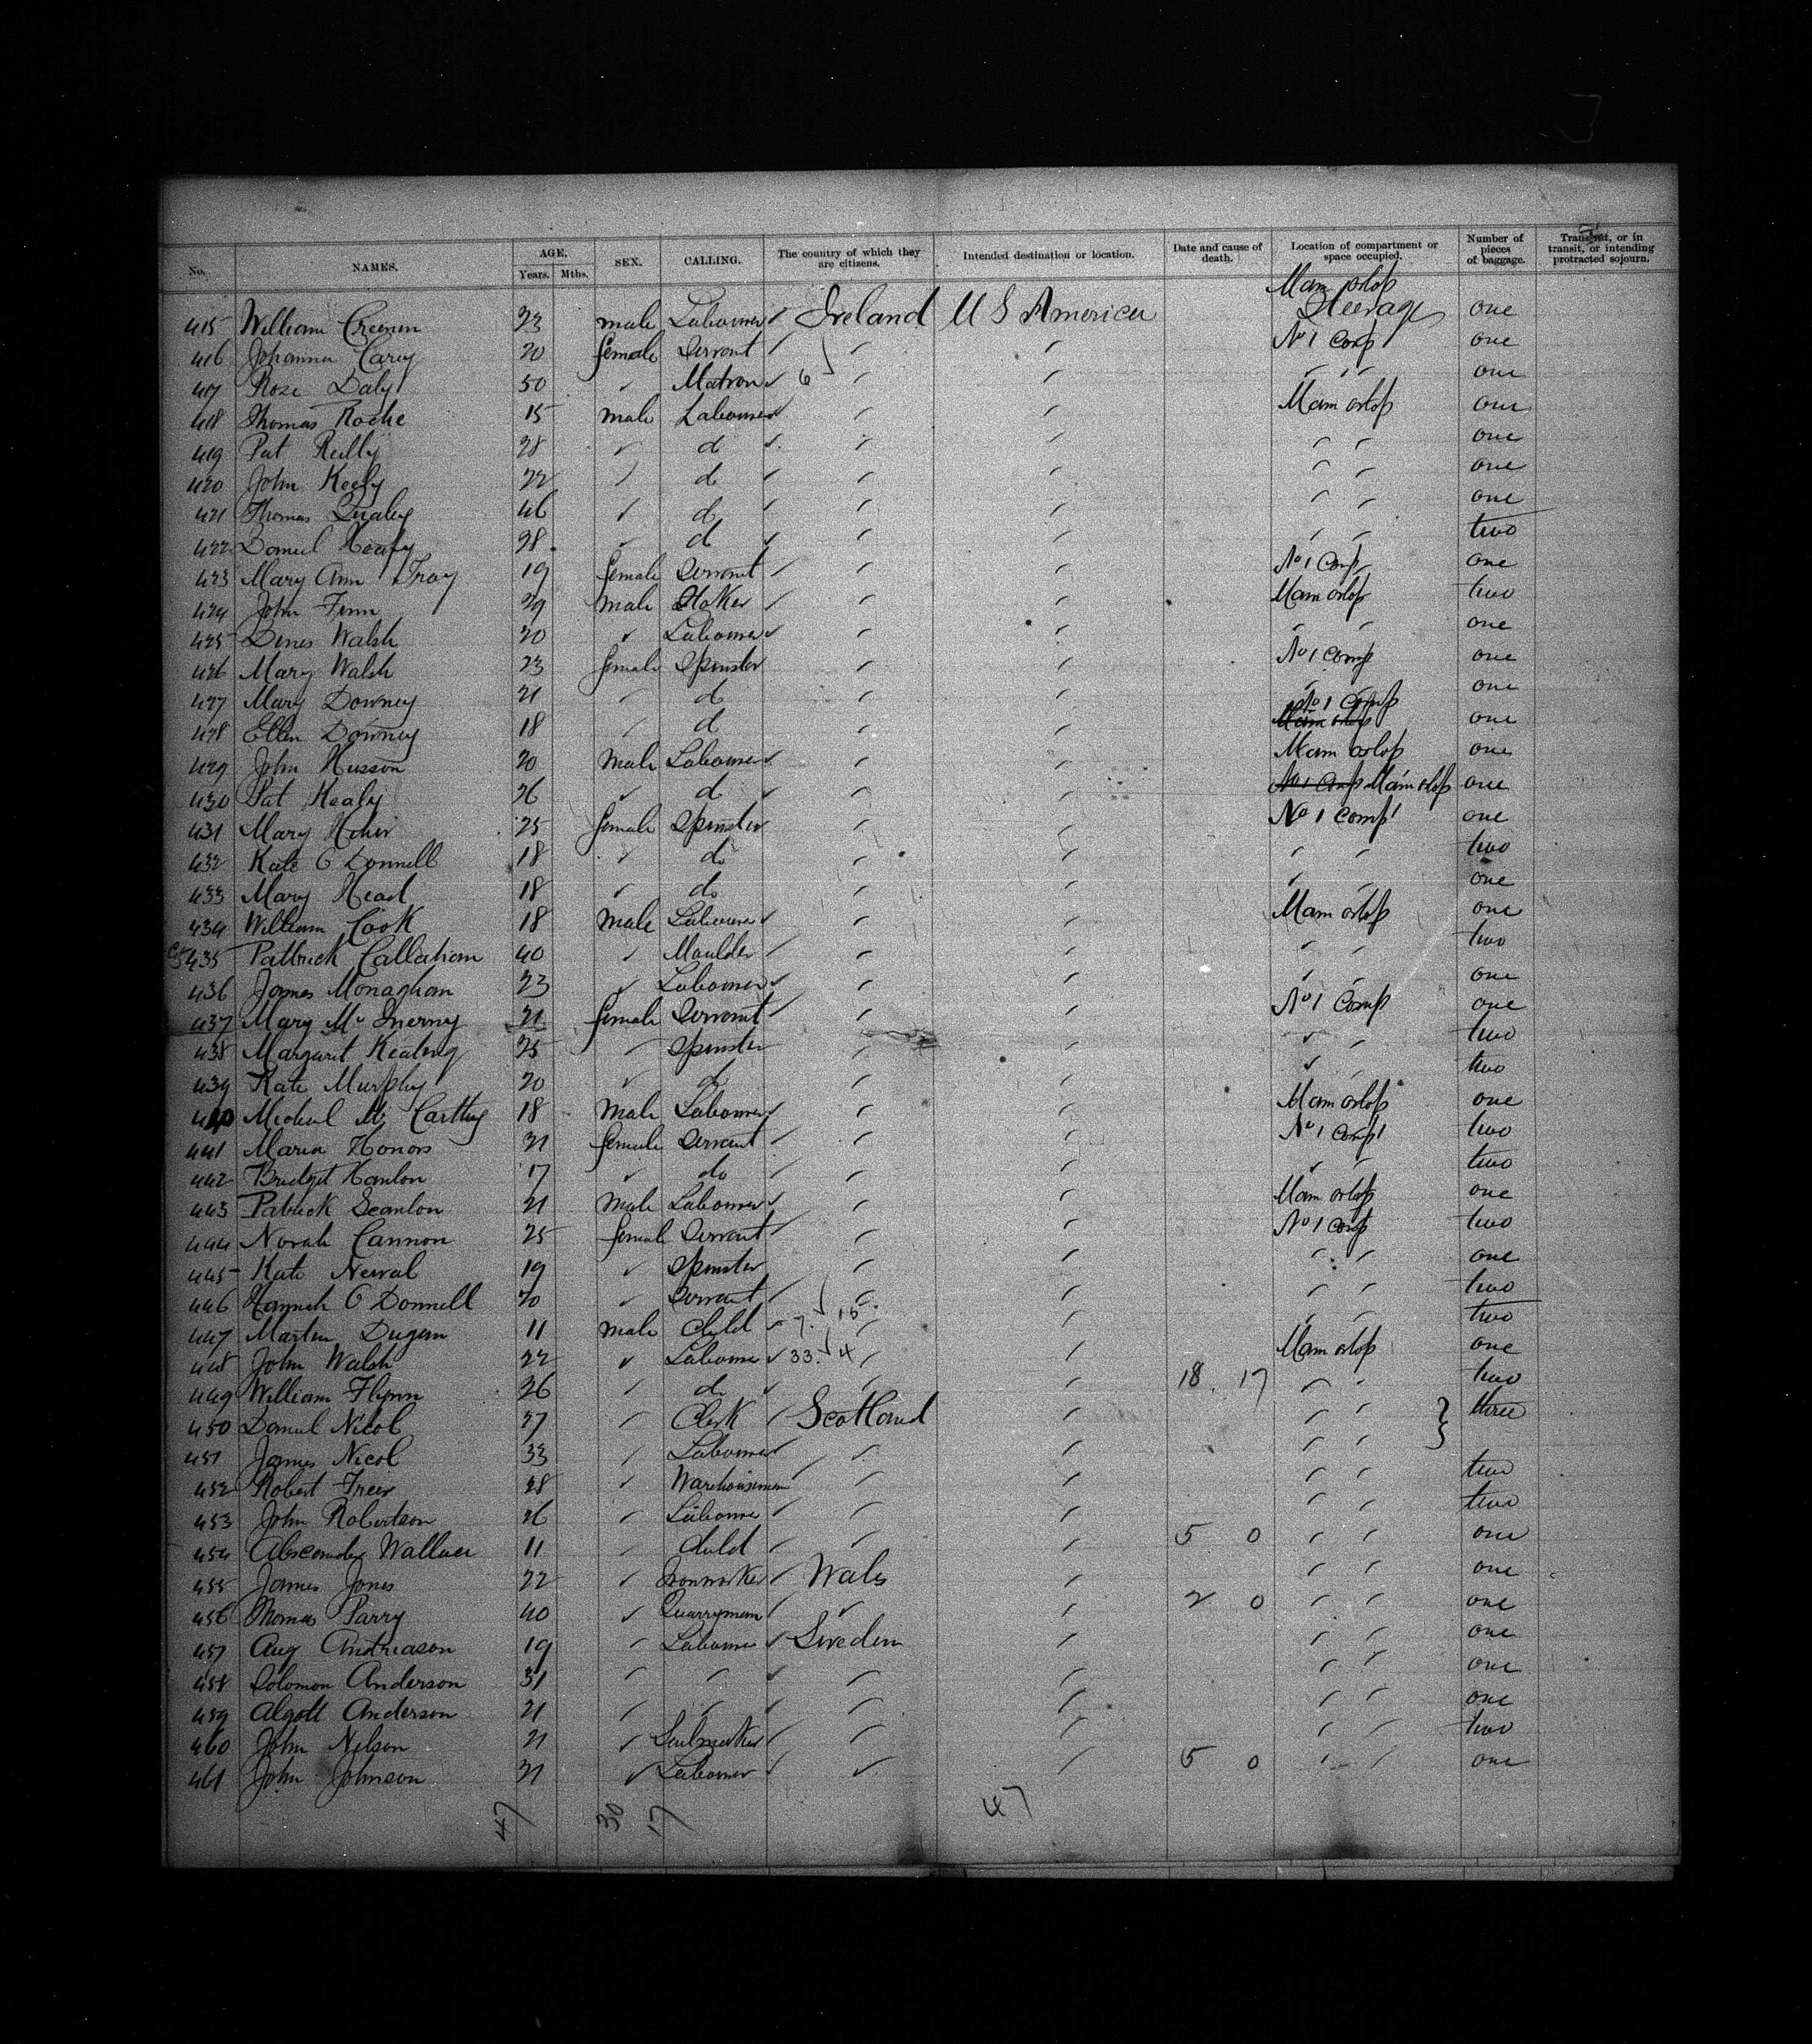 No. NAMES. AGE. Years. Mths. SEX. CALLING. The country of which they are citizens. Intended destination or location. Date and cause of death. Location of compartment or space occupied. Number of pieces of baggage. Transient, or in transit, or intending protracted sojourn.
Main orlop
415 William 23 male Labourer ✓ Ireland U S America Steerage one
416 Johanna Carey 20 female Servant ✓ " " No 1 Comp one
417 Rose Daly 50 " Matron ✓ 6 " " " " one
418 Thomas Roche 15 male Labourer ✓ " " Main orlop one
419 Pat Reilly 28 " d ✓ " " " " one
420 John Keely 22 " d " " " " " one
421 Thomas 46 " d " " " " " one
422 Daniel Heafy 28 " d ✓ " " " " two
423 Mary Ann Troy 19 female Servant " " " No 1 Comp one
424 John Finn 29 male Stoker " " " Main orlop two
425 Denis Walsh 20 " Labourer ✓ " " " " one
426 Mary Walsh 23 female Spinster " " No 1 Comp one
427 Mary Downey 21 " d " " " " one
428 Ellen Downey 18 " d " " No 1 Comp one
429 John Husson 20 male Labourer ✓ " " Main orlop one
430 Pat Healy 26 " d ✓ " " No 1 Comp Main orlop one
431 Mary 25 female Spinster " " No 1 Comp one
432 Kate O Donnell 18 " do " " " " two
433 Mary Head 18 " do " " " " one
434 William Cook 18 male Labourer ✓ " " Main orlop one
435 Pattrick Callaham 40 " Moulder " " " " " two
436 James Monaghan 23 " Labourer ✓ " " " " one
437 Mary Mc Inerny 21 female Servant " " " No 1 Comp one
438 Margaret Keating 25 " Spinster " " " " two
439 Kate Murphy 20 " d " " " " two
440 Micheal Mc Carthy 18 male Labourer ✓ " " Main orlop one
441 Maria Honors 21 female Servant " " " No 1 Comp two
442 Bridget Hanlon 17 " do " " " " " two
443 Patrick Scanlon 21 male Labourer ✓ " " Main orlop one
444 Norah Cannon 25 female Servant " " " No 1 Comp two
445 Kate Newal 19 " Spinster " " " " one
446 Hannah O Donnell 20 " Servant " " " " " two
447 Martin Dugan 11 male Child ✓ 7. 15 " " " " two
448 John Walsh 22 " Labourer ✓ 33. 4 " " Main orlop one
449 William Flynn 26 " d ✓ " " 18. 17 " " two
450 Daniel Nicol 37 " Clerk " Scotland " " " three
451 James Nicol 33 " Labourer ✓ " " " "
452 Robert Freer 28 " Warehouseman " " " " two
453 John Robertson 26 " Labourer " " " " " two
454 Wallace 11 " Child " " " 5 0 " " one
455 James Jones 22 " Ironworker " Wales " " " one
456 Thomas Parry 40 " Quarryman " " " 2 0 " " one
457 Aug Andreason 19 " Labourer ✓ Sweden " " " one
458 Solomon Anderson 31 " " ✓ " " " " one
459 Algott Anderson 21 " " " " " " " one
460 John Nelson 21 " Sailmaker " " " " " two
461 John Johnson 21 " Labourer " " " 5 0 " " one
47 30 17 47